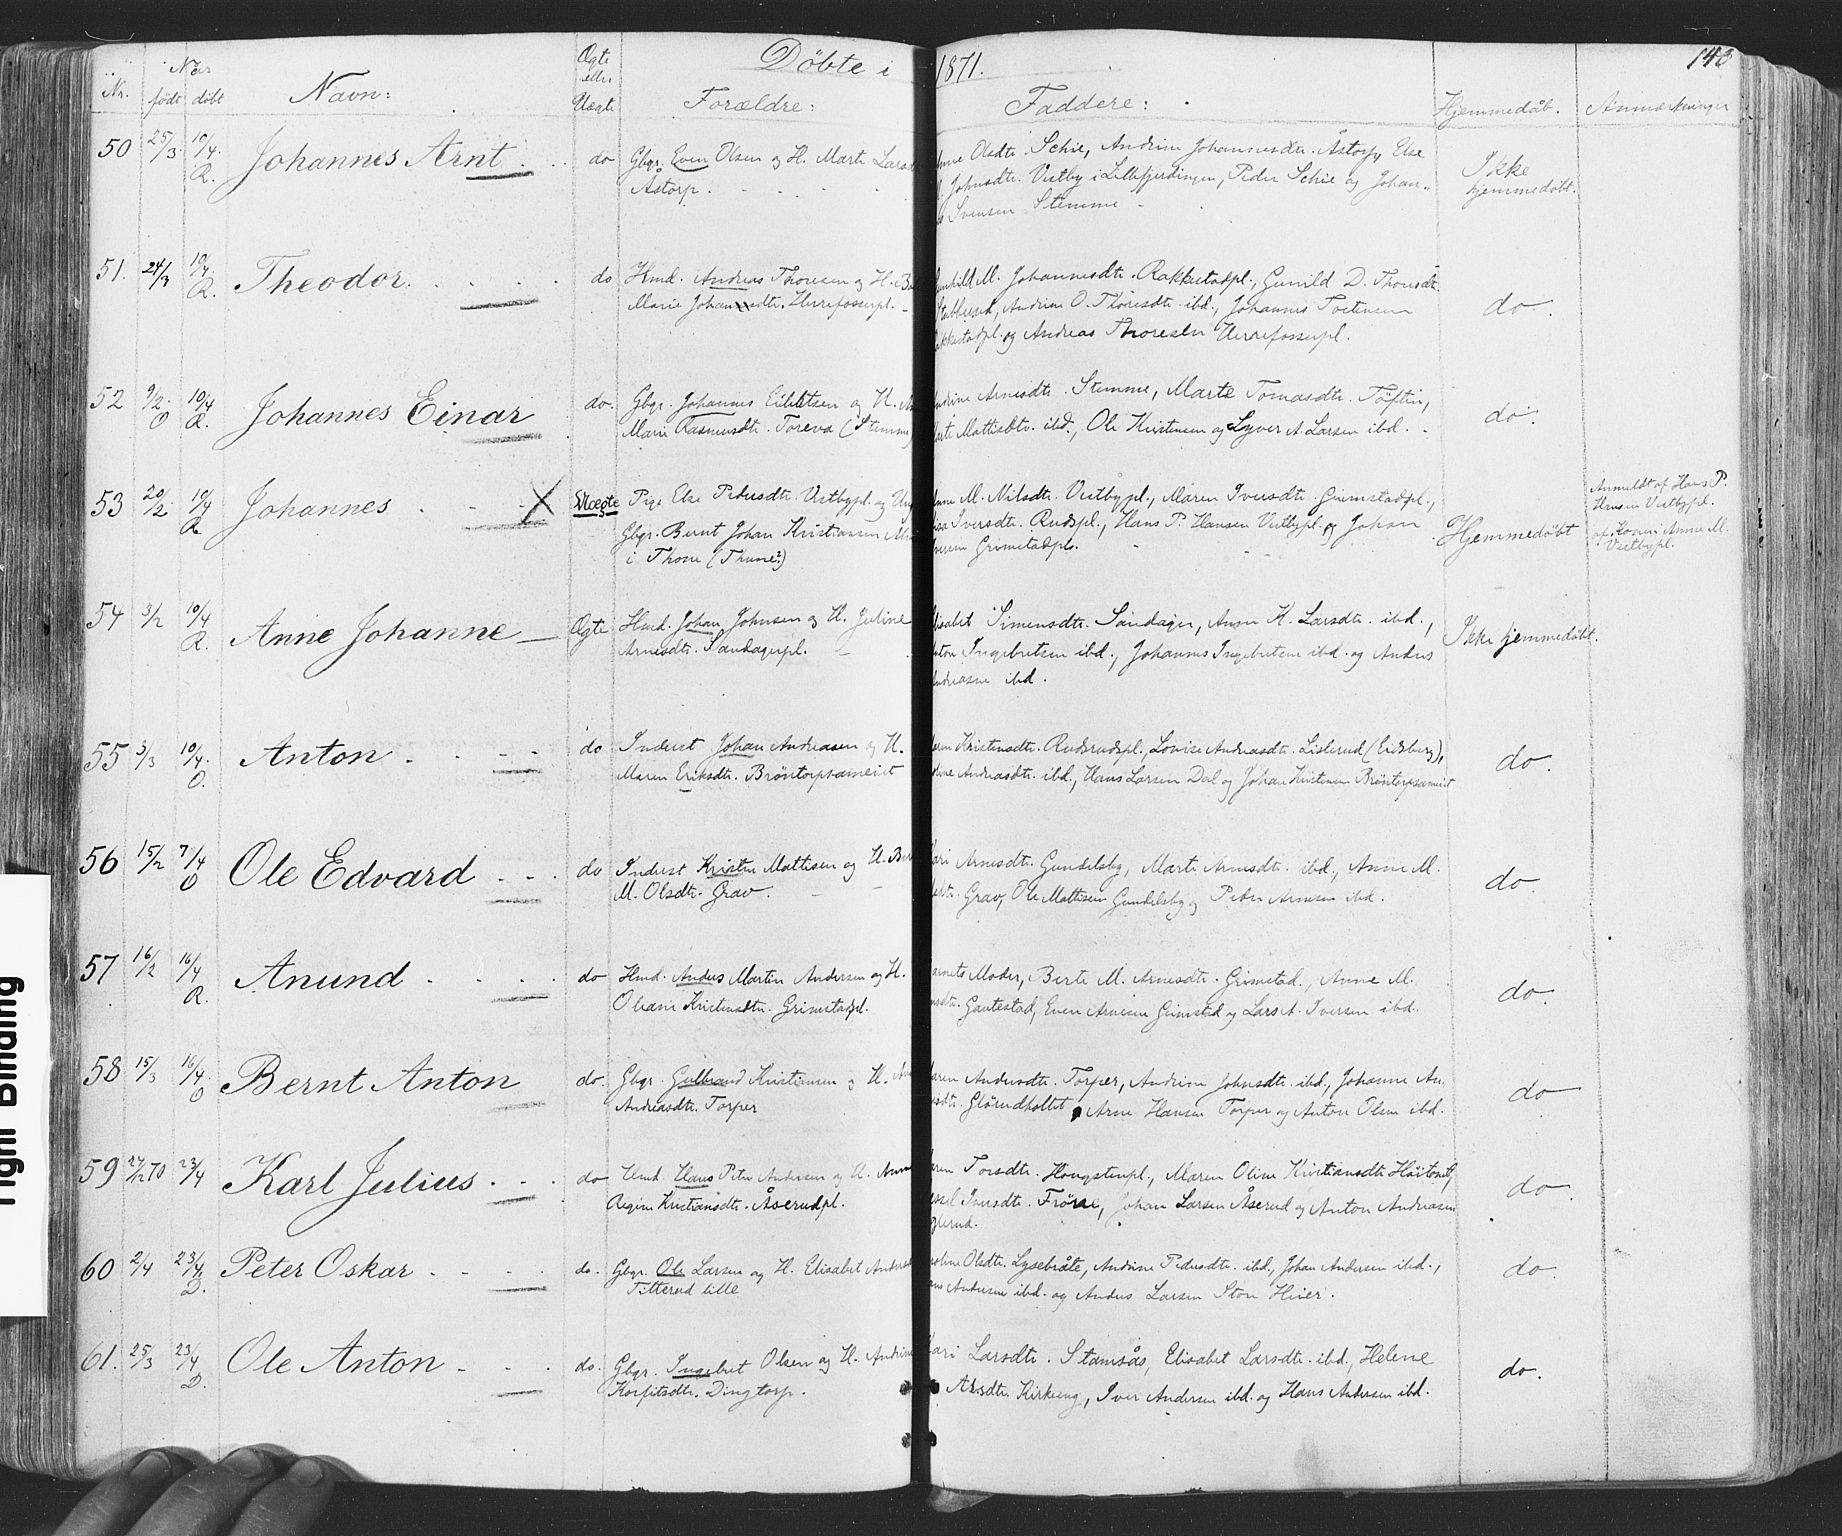 Døbte i 1871.
143
Nr. Naar født døbt Navn: Ægte eller Uægte Forældre: Faddere: Hjemmedåb. Anmærkninger
50 25/3 10/4. R. Johannes Arnt . . do Gbgr. Even Olsen og H. Marte Larsd
Åstorp.
Olsdtr. Schie, Andrine Johannesdtr. Åstorp, Else
Johnsdtr. Vestby i Lillefjerdingen, Peder Schie og Johan-
Svensen Stemme
Ikke
hjemmedøbt.
51. 24/3 10/4. R. Theodor. do Hmd. Andreas Thoresen og H.
Marie Johannesdtr. Herrefosserpl.
M. Johannesdtr. Rakkestadpl., Gunild D. Thoresdtr.
Stablerud, Andrine O. Thoresdtr. ibd., Johannes Tostensen
og Andreas Thoresen Herrefosserpl.
do.
52 9/2. O 10/4 R. Johannes Einar do. Gbgr. Johannes Eilertsen og H.
Marie Rasmusdtr. Foreva (Stemme)
Arnesdtr. Stemme, Marte Tomasdtr. Tøften,
Mattisdtr. ibd., Ole Kristensen og Syver A. Larsen ibd.
do.
53 20/2. 10/4 R Johannes X Uægte Pige Else Pedersdtr. Vestbypl. og
Gbgr. Bernt Johan Kristiansen
i Thom (Thune?)
M. Nilsdtr. Vestbypl., Maren Iversdtr. Grimstadpl.,
Iversdtr. Rudspl., Hans P. Hansen Vestbypl. og Johan
Grimstadpl.
Hjemmedøbt
Anmeldt af Hans P.
Hansen Vestbypl.
af Konen Anne M.
Vestbypl.
54 3/2 10/4 R. Anne Johanne Ægte Hmd. Johan Johnsen og H. Juline
Arnesdtr. Sandagerpl.
Simensdtr. Sandager, Anne K. Larsdtr. ibd.,
Ingebretsen ibd., Johannes Ingebretsen ibd. og Anders
Andreasen ibd.
Ikke hjemmedøbt.
55 3/3 10/4. O. Anton . do Inderst Johan Andreasen og H.
Maren Eriksdtr. Bröntorpsameiet
Kristensdtr. Rudsrudspl., Lovise Andreasdtr. Lislerud (Eidsberg),
Andreasdtr. ibd., Hans Larsen Dal og Johan Kristensen Bröntorpsameiet
do.
56 15/2 7/4 O Ole Edvard do Inderst Kristen Mattisen og H. Ber
M. Olsdtr. Grav.
Arnesdtr. Gundelsby, Marte Arnesdtr. ibd., Anne M.
Grav, Ole Mattisen Gundelsby og Peder Arnesen ibd.
do.
57 16/2 16/4 R. Anund . do Hmd. Anders Martin Andersen og H.
Oleane Kristensdtr. Grimstadpl.
Moder, Berte M. Arnesdtr. Grimstad., Anne M.
Gautestad, Even Arnesen Grimstad og Lars A. Iversen ibd.
do.
58 15/3 16/4 O Bernt Anton do. Gbgr. Gulbrand Kristiansen og H.
Andreasdtr. Torper
Andersdtr. Torper, Andrine Johnsdtr. ibd., Johanne An.
Glörudholtet, Arne Hansen Torper og Anton Olsen ibd.
do
59 27/12 70 23/4 Karl Julius . do Hmd. Hans Peter Andersen og H. Anne
Regine Kristiansdtr. Åserudpl.
Torsdtr. Hougstenpl., Maren Oline Kristiansdtr.
Iversdtr. Frörae, Johan Larsen Åserud og Anton Andreasen
do.
60 2/4 23/4 D. Peter Oskar do. Gbgr. Ole Larsen og H. Elisabet Anders
Titterud lille
Olsdtr. Lysebråte, Andrine Pedersdtr. ibd., Johan Andersen ibd.,
Andersen ibd. og Anders Larsen Ston Hiier.
do.
61. 25/3 23/4 D. Ole Anton do. Gbgr. Ingebret Olsen og H. Andrine
Korfitsdtr. Dingtorp.
Kari Larsdtr. Stamsås, Elisabet Larsdtr. ibd., Helene
Kirkeng, Iver Andersen ibd. og Hans Andersen ibd.
do.
Tight Binding